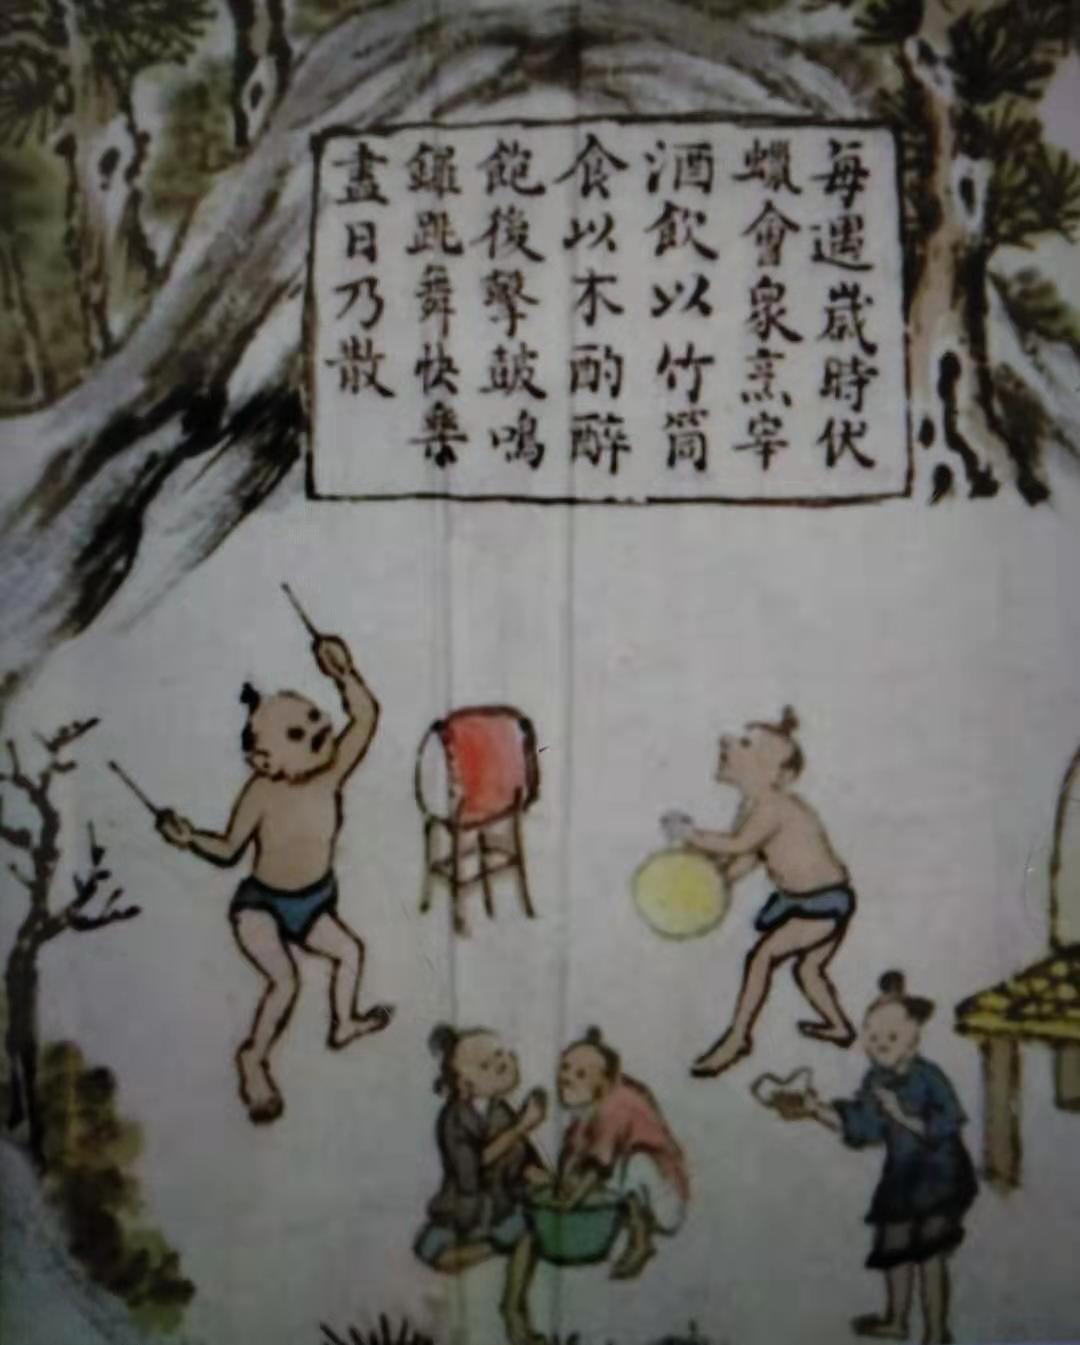 每遇嵗時伏
蠟會衆烹宰
酒飲以竹筒
食以木酌醉
飽後擊鼓鳴
鑼跳舞快樂
盡日乃散